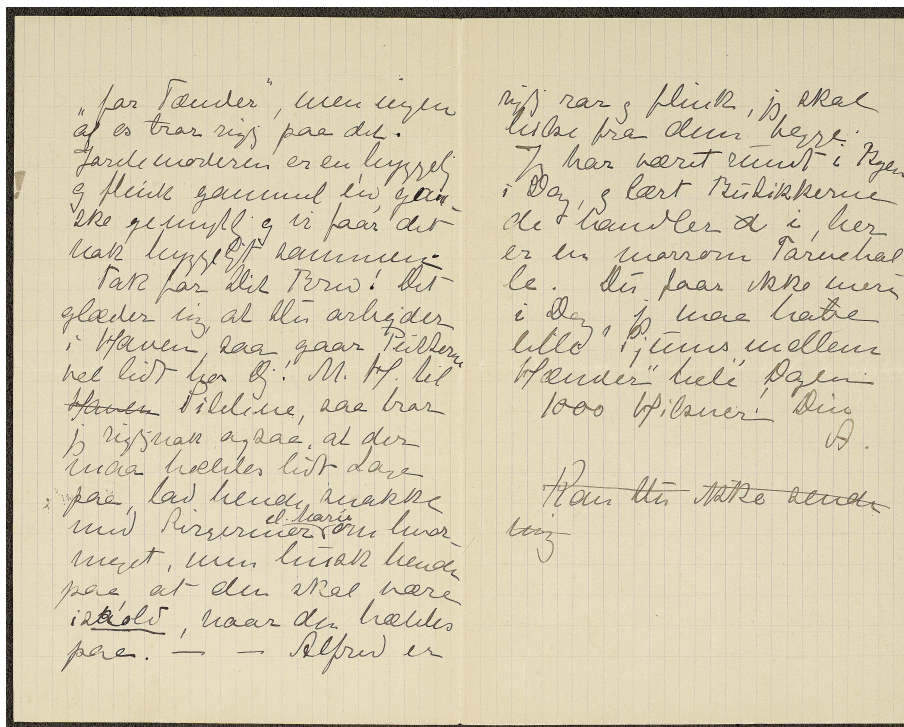 "faar Tænder", men ingen
af os tror rigtig paa det.
Jordemoderen er en hyggelig
og flink gammel én, gan-
ske gemytlig og vi faar det
nok hyggeligt sammen.
Tak for Dit Brev! Det
glæder mig, at Du arbejder
i Haven, saa gaar
vel lidt hos Dig! M. H. til
Haven, saa tror
jeg rigtignok ogsaa, at der
maa hældes lidt Lage
paa, lad hende snakke
med el. Marie om hvor
meget, men husk hende
paa at den skal være
iskold, naar den hældes
paa. — — Alfred er
rigtig rar og flink, jeg skal
hilse fra dem begge.
Jeg har været rundt i Byen
i Dag, og lært Butikkerne
de handler i, her
er en morsom Torvehal
le. Du faar ikke mere
i Dag, jeg maa have
lille "mellem
Hænder" hele Dagen
1000 Hilsner! Din
A.
Kan Du ikke sende
mig